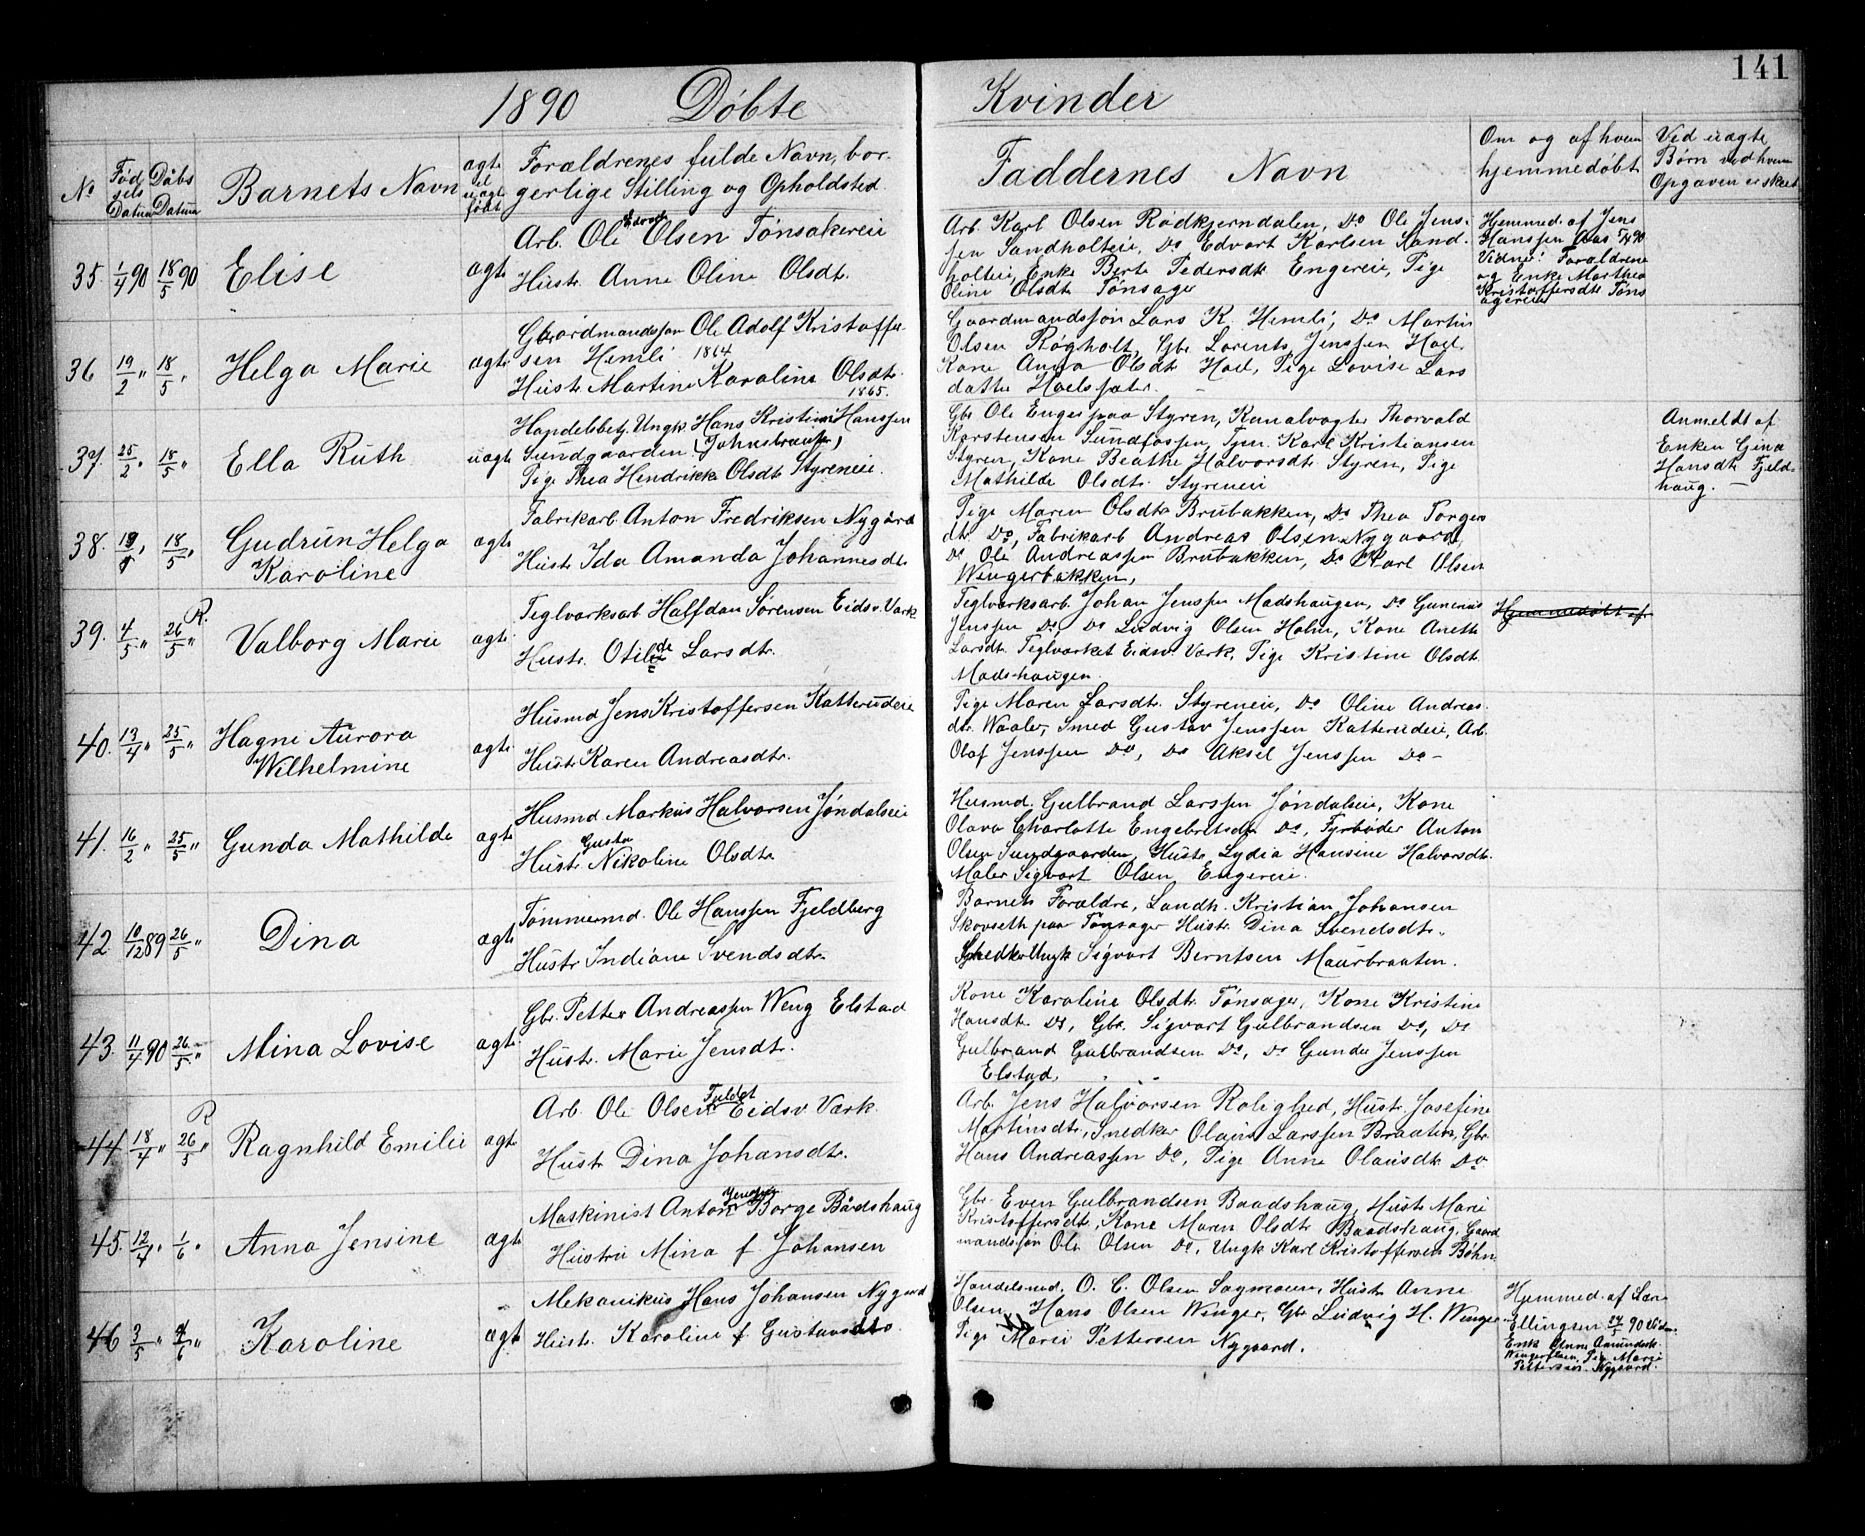 141
1890 Døbte Kvinder
No
Fødsels Datum
Døbs Datum
Barnets Navn
ægte el uægte født
Forældrenes fulde Navn, bor-
gerlige Stilling og Opholdsted
Faddernes Navn
Om og af hvem
hjemmedøbt
Ved uægte
Børn ved hvem
Opgaven er skeet
35. 1/4 90 18/5 90 Elise ægte
Arb. Ole Olsen Tønsakereie
Hustr. Anne Oline Olsdt.
Arb. Karl Olsen Rødkjerndalen, Do Ole Jens-
sen Sandholteie, Do Edvart Karlsen Sand-
holteie, Enke Berte Pedersdtr Engereie, Pige
Oline Olsdtr Tønsager
Hjemmed. af Jens
Hanssen Aas
Vidner: Forældrene
og Enke Marthea
Kristoffersdtr Tøns
agereie
36 19/2 " 18/5 " Helga Marie ægte
Gaardmandssøn Ole Adolf Kristoffer-
sen Hemli 1864
Hustr. Martine Karoline Olsdtr.
1865.
Gaardmandssøn Lars K. Hemli, Do Martin
Olsen Røgholt, Gbr Lorents Jenssen Hoel.
Kone Anna Olsdt Hoel, Pige Lovise Lars
datter Hoelssæter. -
37. 25/2 " 18/5 " Ella Ruth uægte
Handelsbetj. Ungk. Hans Kristian Hanssen
Sundgaarden
Pige Thea Hendrikke Olsdtr Styreneie.
Gbr Ole Enger paa Styren, Kanalvogter Thorvald
Karstensen Sundfossen, Tøm. Karl Kristiansen
Styren, Kone Beathe Halvorsdtr. Styren, Pige
Mathilde Olsdtr. Styreneie
Anmeldt af
Enken Gina
Hansdtr Fjeld-
haug. -
38. 18/5 " Gudrun Helga
Karoline ægte
Fabrikarb. Anton Fredriksen Nygård
Hustr Ida Amanda Johannesdtr
Pige Maren Olsdtr Brubakken, Do Thea Torgers
dtr Do, Fabrikarb Andreas Olsen Nygaard,
Do Ole Andreassen Brubakken, Do Karl Olsen
Wingerbakken,
39. 4/5 " 26/5 " R. Valborg Marie ægte
Teglværksarb. Halfdan Sørensen Eidsv. Værk
Hustr. Otilde Larsdtr.
Teglværksarb. Johan Jenssen Madshaugen, Do Gunerius
Jenssen Do, Do Ludvig Olsen Holm, Kone Anette
Larsdtr. Teglværket Eidsv. Værk, Pige Kristine Olsdt.
Madshaugen.
Hjemmedøbt af
40. 13/4 " 25/5 " Hagne Aurora
Wilhelmine ægte
Husmd Jens Kristoffersen Katterudeie
Hustr Karen Andreasdtr.
Pige Maren Larsdtr. Styreneie, Do Oline Andreas
dtr. Waaler, Smed Gustav Jenssen Katterudeie, Arb.
Olaf Jenssen Do, Do Aksel Jenssen Do -
41. 16/2 " 25/5 " Gunda Mathilde ægte
Husmd Markus Halvorsen Jøndalseie
Gusta
Hustr. Nikoline Olsdtr
Husmd. Gulbrand Larssen Jøndalseie, Kone
Olava Charlotte Engebretsdtr Do, Fyrbøder Anton
Olsen Sundgaarden, Hustr Lydia Hansine Halvorsdt.
Maler Sigvart Olsen Engereie.
42 10/12 89 26/5 " Dina ægte
Tømmermd. Ole Hanssen Fjeldberg
Hustr Indiane Svendsdtr.
Barnets Forældre, Landh. Kristian Johansen
Skovseth paa Tønsager Hustr. Dina Svendsdtr.
Snedker Ungk Sigvart Berntsen Maurbraaten.
43. 11/4 90 26/5 " Mina Lovise ægte
Gbr. Petter Andreassen Weng Elstad
Hustr. Marie Jensdtr.
Kone Karoline Olsdtr Tønsager, Kone Kristine
Hansdtr Do, Gbr. Sigvart Gulbrandsen Do, Do
Gulbrand Gulbrandsen Do, Do Gunder Jenssen
Elstad.
44 18/4 " 26/5 " R Ragnhild Emilie ægte
Arb. Ole Olsen Eidsv Værk.
Hustr Dina Johansdtr.
Arb. Jens Halvorsen Rolighed, Hustr. Josefine
Martinsdtr, Snedker Olaus Larssen Braaten, Gbr.
Hans Andreassen Do, Pige Anne Olausdtr Do
45. 12/4 " 1/6 " Anna Jensine ægte
Maskinist Anton Borge Bådshaug
Hustru Mina f Johansen
Gbr. Even Gulbrandsen Baadshaug, Hustr Marie
Kristoffersdtr, Kone Maren Olsdtr Baadshaug, Gaard
mandssøn Ole Olsen Do, Ungk Karl Kristoffersen Bøhn
46 3/5 " Karoline ægte
Mekanikus Hans Johansen Nygaard
Hustr. Karoline f Gustavsdtr.
Handelsmd. O. C. Olsen Sagmoen, Hustr Anne
Olsen, Hans Olsen Winger, Gbr Ludvig H. Winger
Pige Marie Pettersen Nygaard.
Hjemmed. af Lære
Ellingsen 90 Vidn.
Enke Anne Amundsdt.
Pige Marie
Pettersen Nygaard.